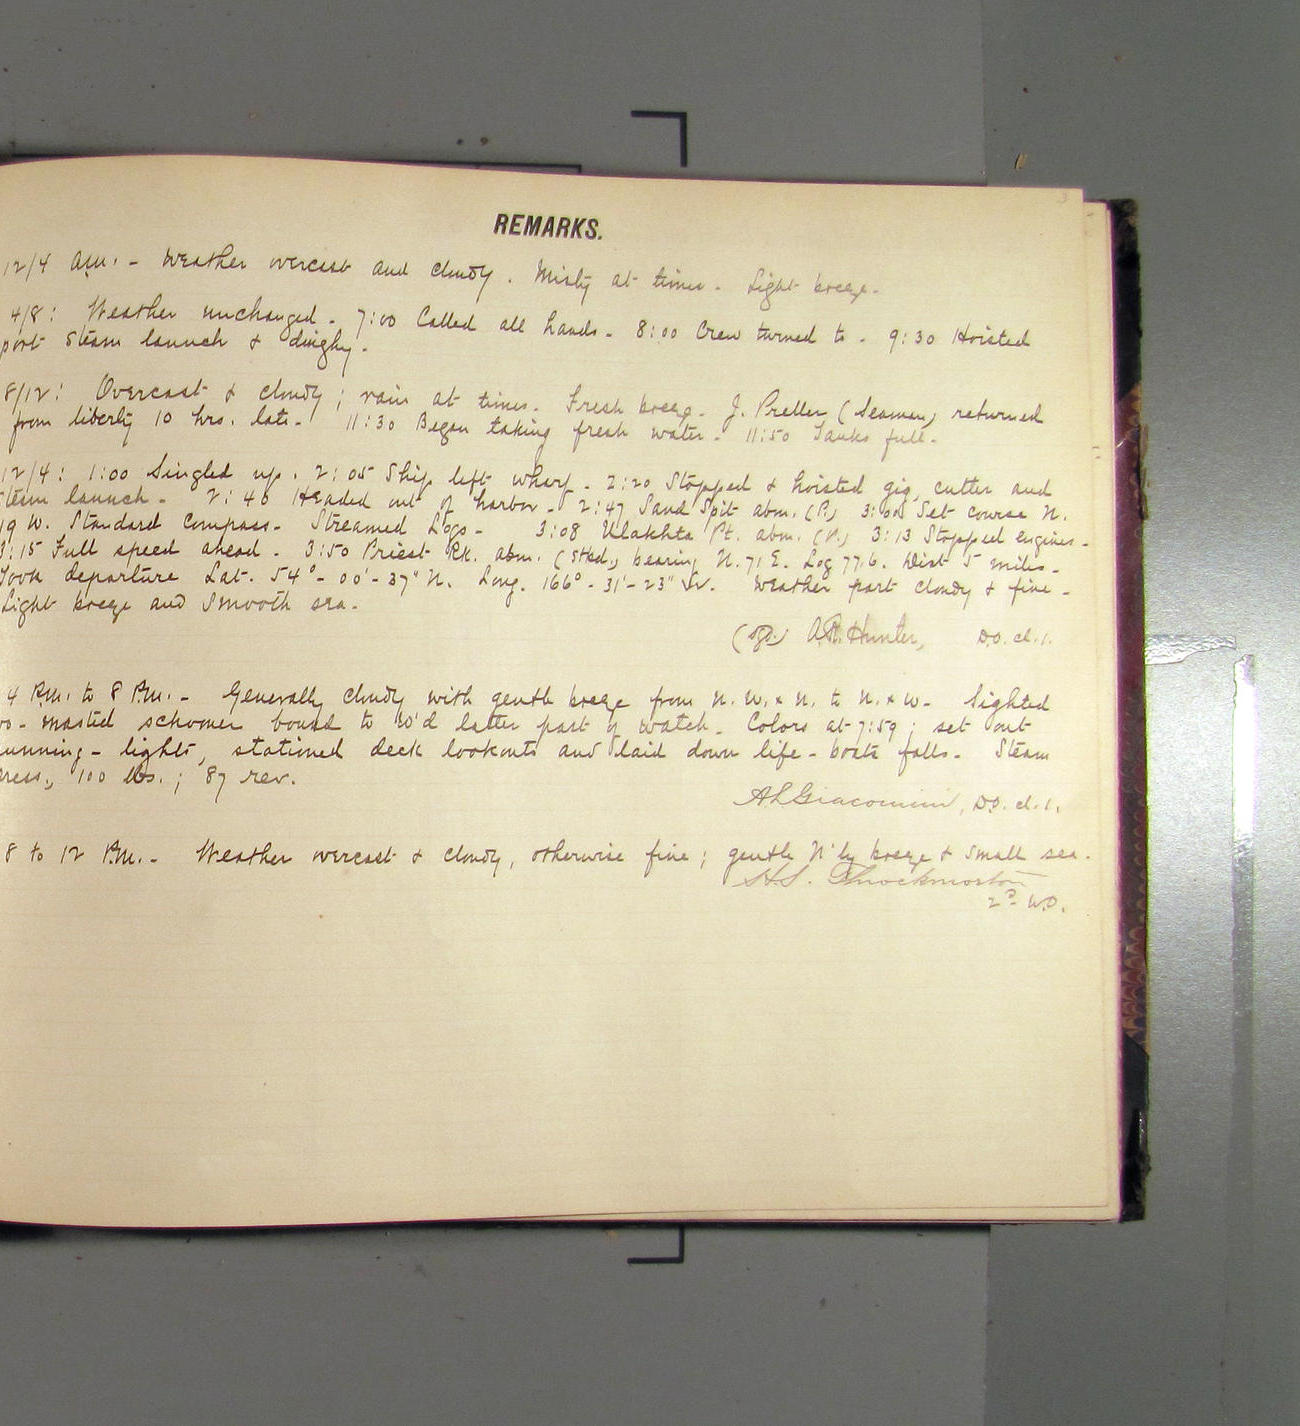 REMARKS.
12/4 a.m. - Weather overcast and cloudy. Misty at times. Light breeze.
4/8: Weather unchanged. 7:00 Called all hands. 8:00 Crew turned to. 9:30 Hoisted
port steam launch & dinghy.
8/12: Overcast & cloudy; rain at times. Fresh breeze. J. Preller (Seaman) returned
from liberty 10 hrs. late. 11:30 Began taking fresh water. 11:50 Tanks full.
12/4: 1:00 Singled up. 2:05 Ship left wharf. 2:20 Stopped & hoisted gig, cutter and
steam launch. 2:40 Headed out of harbor. 2:47 Sand Spit abm. (P.) Set course N.
19 W. Standard Compass. Streamed Logs. 3:08 Ulakhta Pt. abm. (P.) 3:13 Stopped engines.
3:15 Full speed ahead. 3:50 Priest Rk. abm. (Stbd.) bearing N. 71 E. Log 77.6. Dist 5 miles.
Took departure Lat. 54°-00'-37" N. Long. 166°-31'-23" W. Weather part cloudy & fine.
Light breeze and smooth sea.
(sgd.) A.R. Hunter, D.O. cl. 1.
4 P.M. to 8 P.M. - Generally cloudy with gentle breeze from N.W. x N. to N. x W. Sighted
wo-masted schooner bound to W'd latter part of watch. Colors at 7:59; set out
unning-lights, stationed deck lookouts and laid down life-boats falls. Steam
press., 100 lbs.; 87 rev.
A L Giacomini, D.O. cl. 1.
8 to 12 P.M. - Weather overcast & cloudy, otherwise fine; gentle N'ly breeze & small sea.
H.S. Throckmorton
2d W.O.